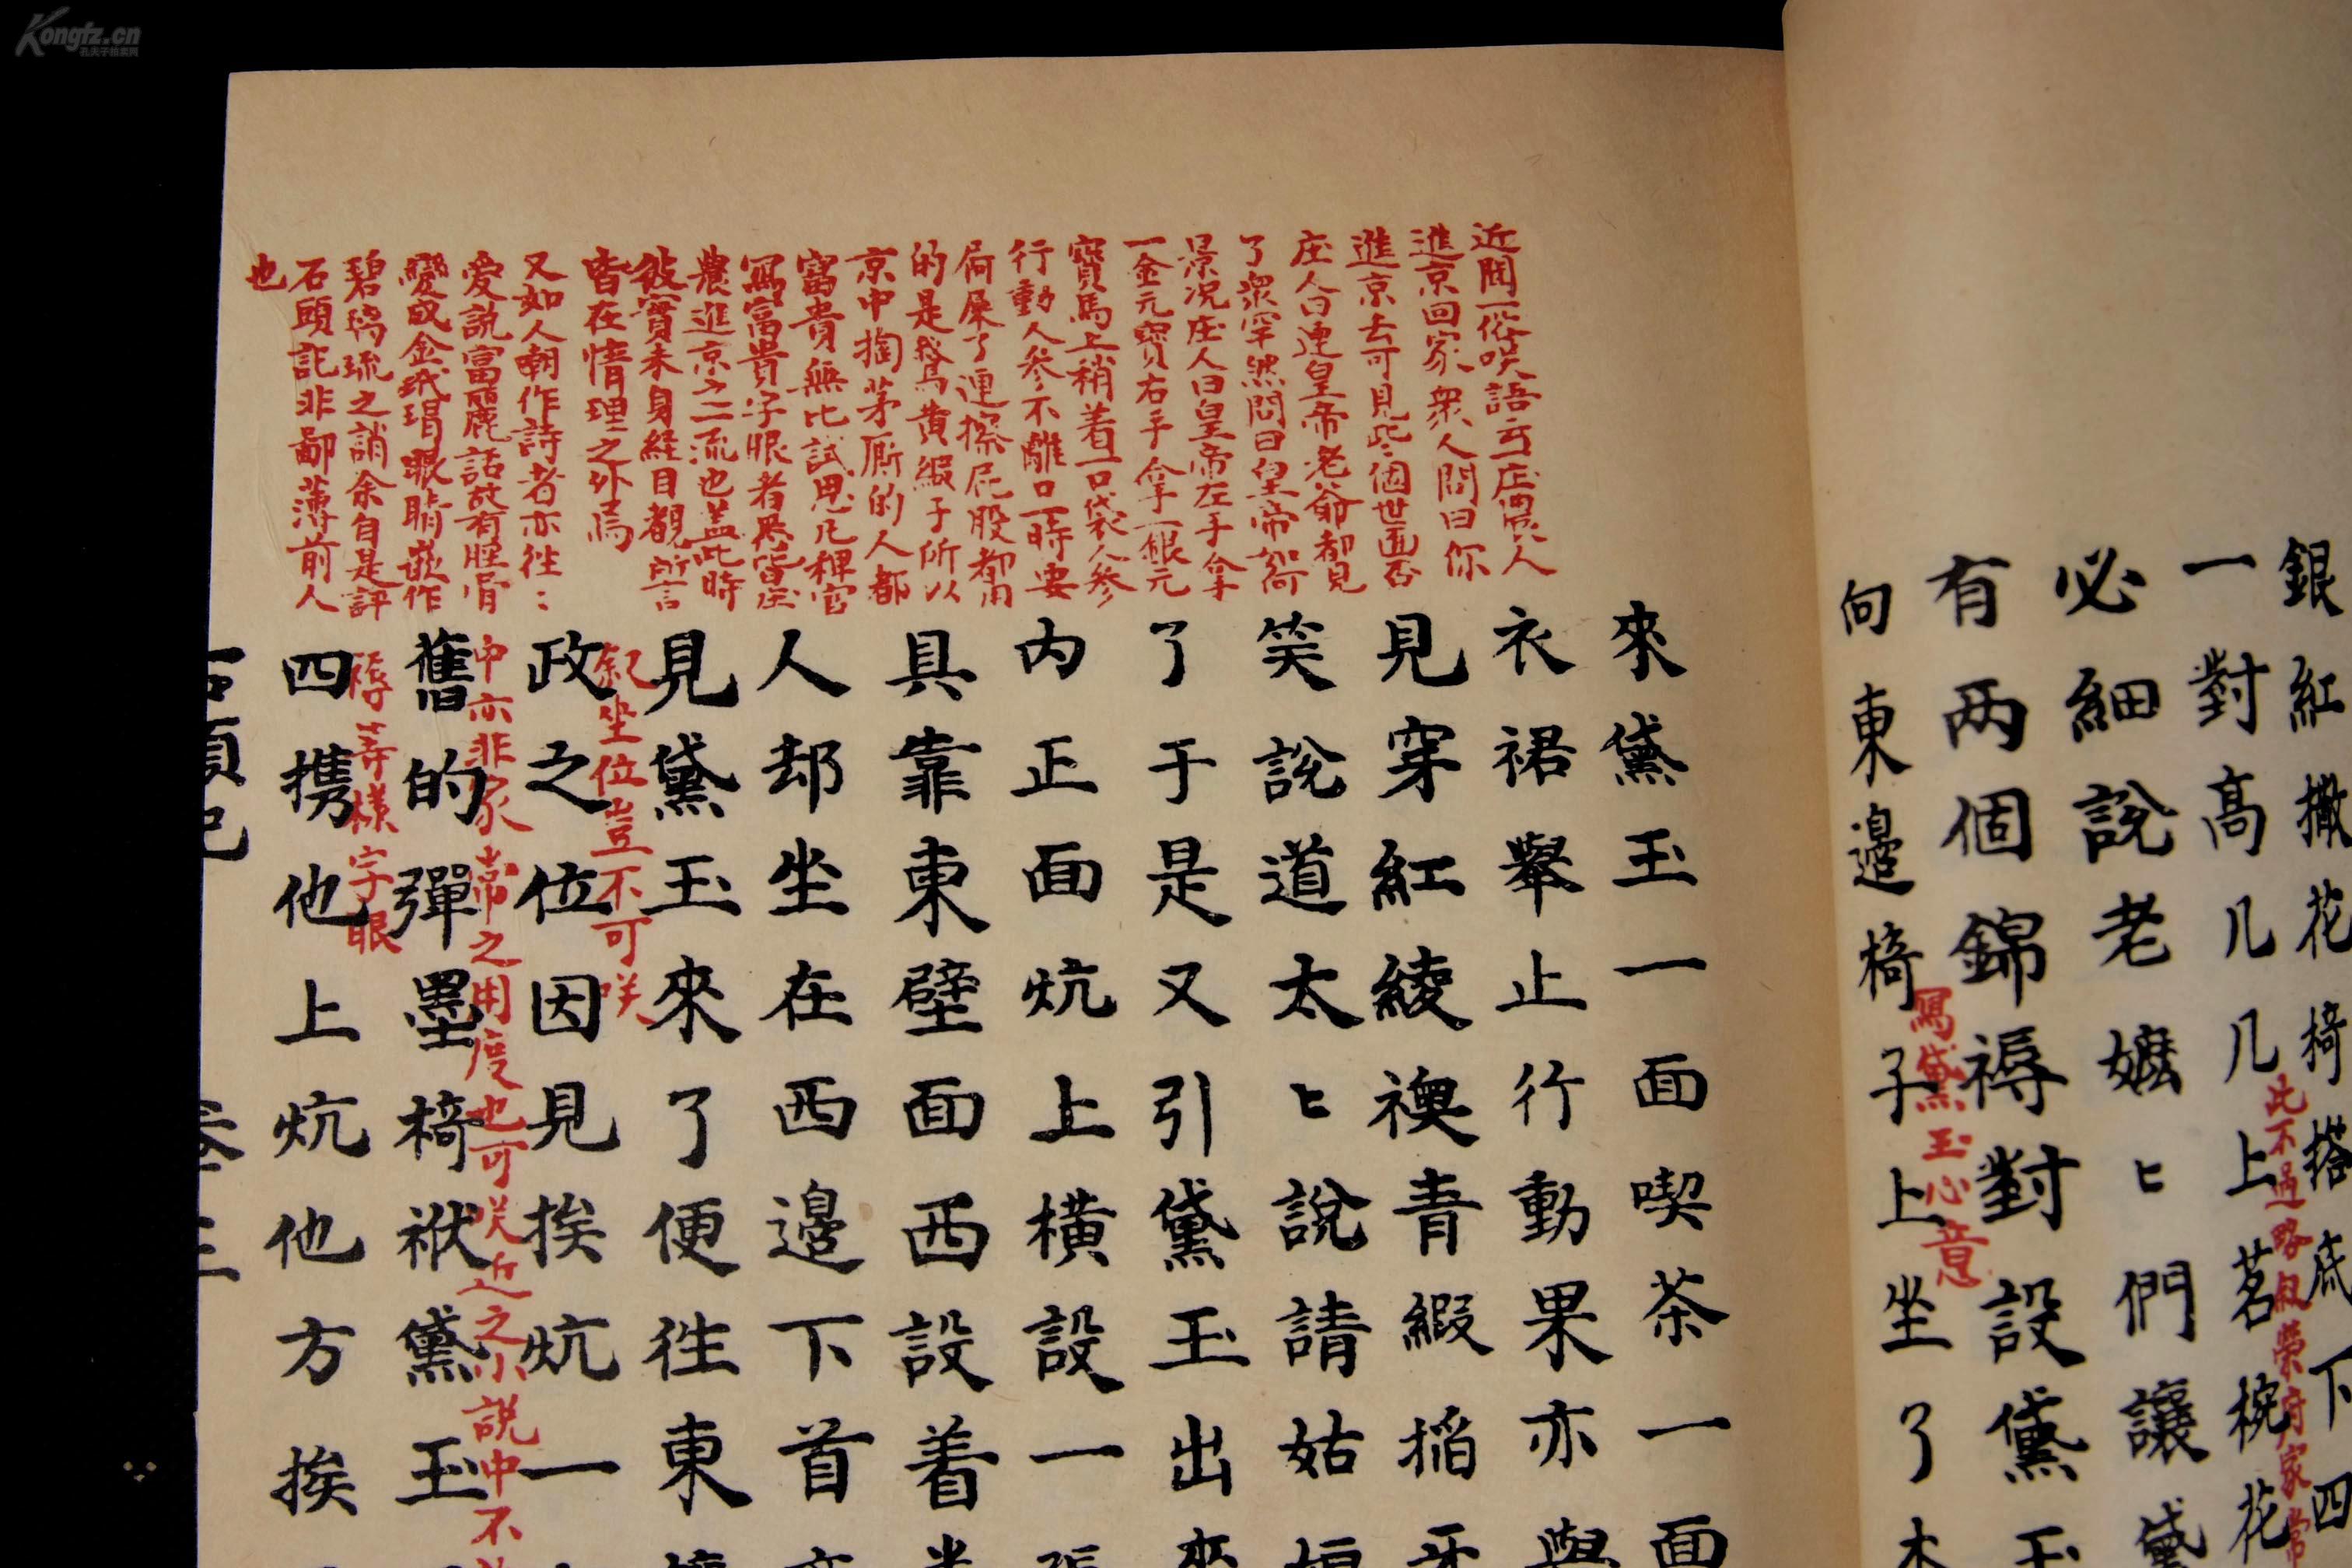 Kongfz.cn
孔夫子拍卖网
銀紅撒花椅搭底下四
此不過略叙榮府家常
一對高几几上茗椀花
必細說老嬷〻們讓黛
有两個錦褥對設黛玉
寫黛玉心意
向東邉椅子上坐了本
近聞一俗咲語云庄農人
進京回家衆人問曰你
進京去可見些個世面否
庄人曰連皇帝老爺都見
了衆罕然問曰皇帝如何
景况庄人曰皇帝左手拿
一金元寳右手拿一銀元
寳馬上稍着一口袋人参
行動人参不離口一時要
屙屎了連擦屁股都用
的是鵞黄緞子所以
京中掏茅厠的人都
富貴無比試思凡稗官
寫富貴字眼者悉皆庄
農進京之一流也盖此時
彼實未身經目覩所言
皆在情理之外焉
又如人嘲作詩者亦徃〻
愛說富麗話故有脛骨
變成金玳瑁眼睛嵌作
碧璃琉之誚余自是評
石頭記非鄙薄前人
也
來黛玉一面喫茶一面
衣裙舉止行動果亦與
見穿紅綾襖青緞掐牙
笑說道太〻說請姑娘
了于是又引黛玉出來
内正面炕上横設一張
具靠東壁面西設着半
人却坐在西邉下首亦
見黛玉來了便徃東讓
叙坐位豈不可咲
政之位因見挨炕一
中亦非家常之用度也可咲近之小說中不
舊的彈墨椅袱黛玉
褥等様字眼
四携他上炕他方挨
石頭記 卷三